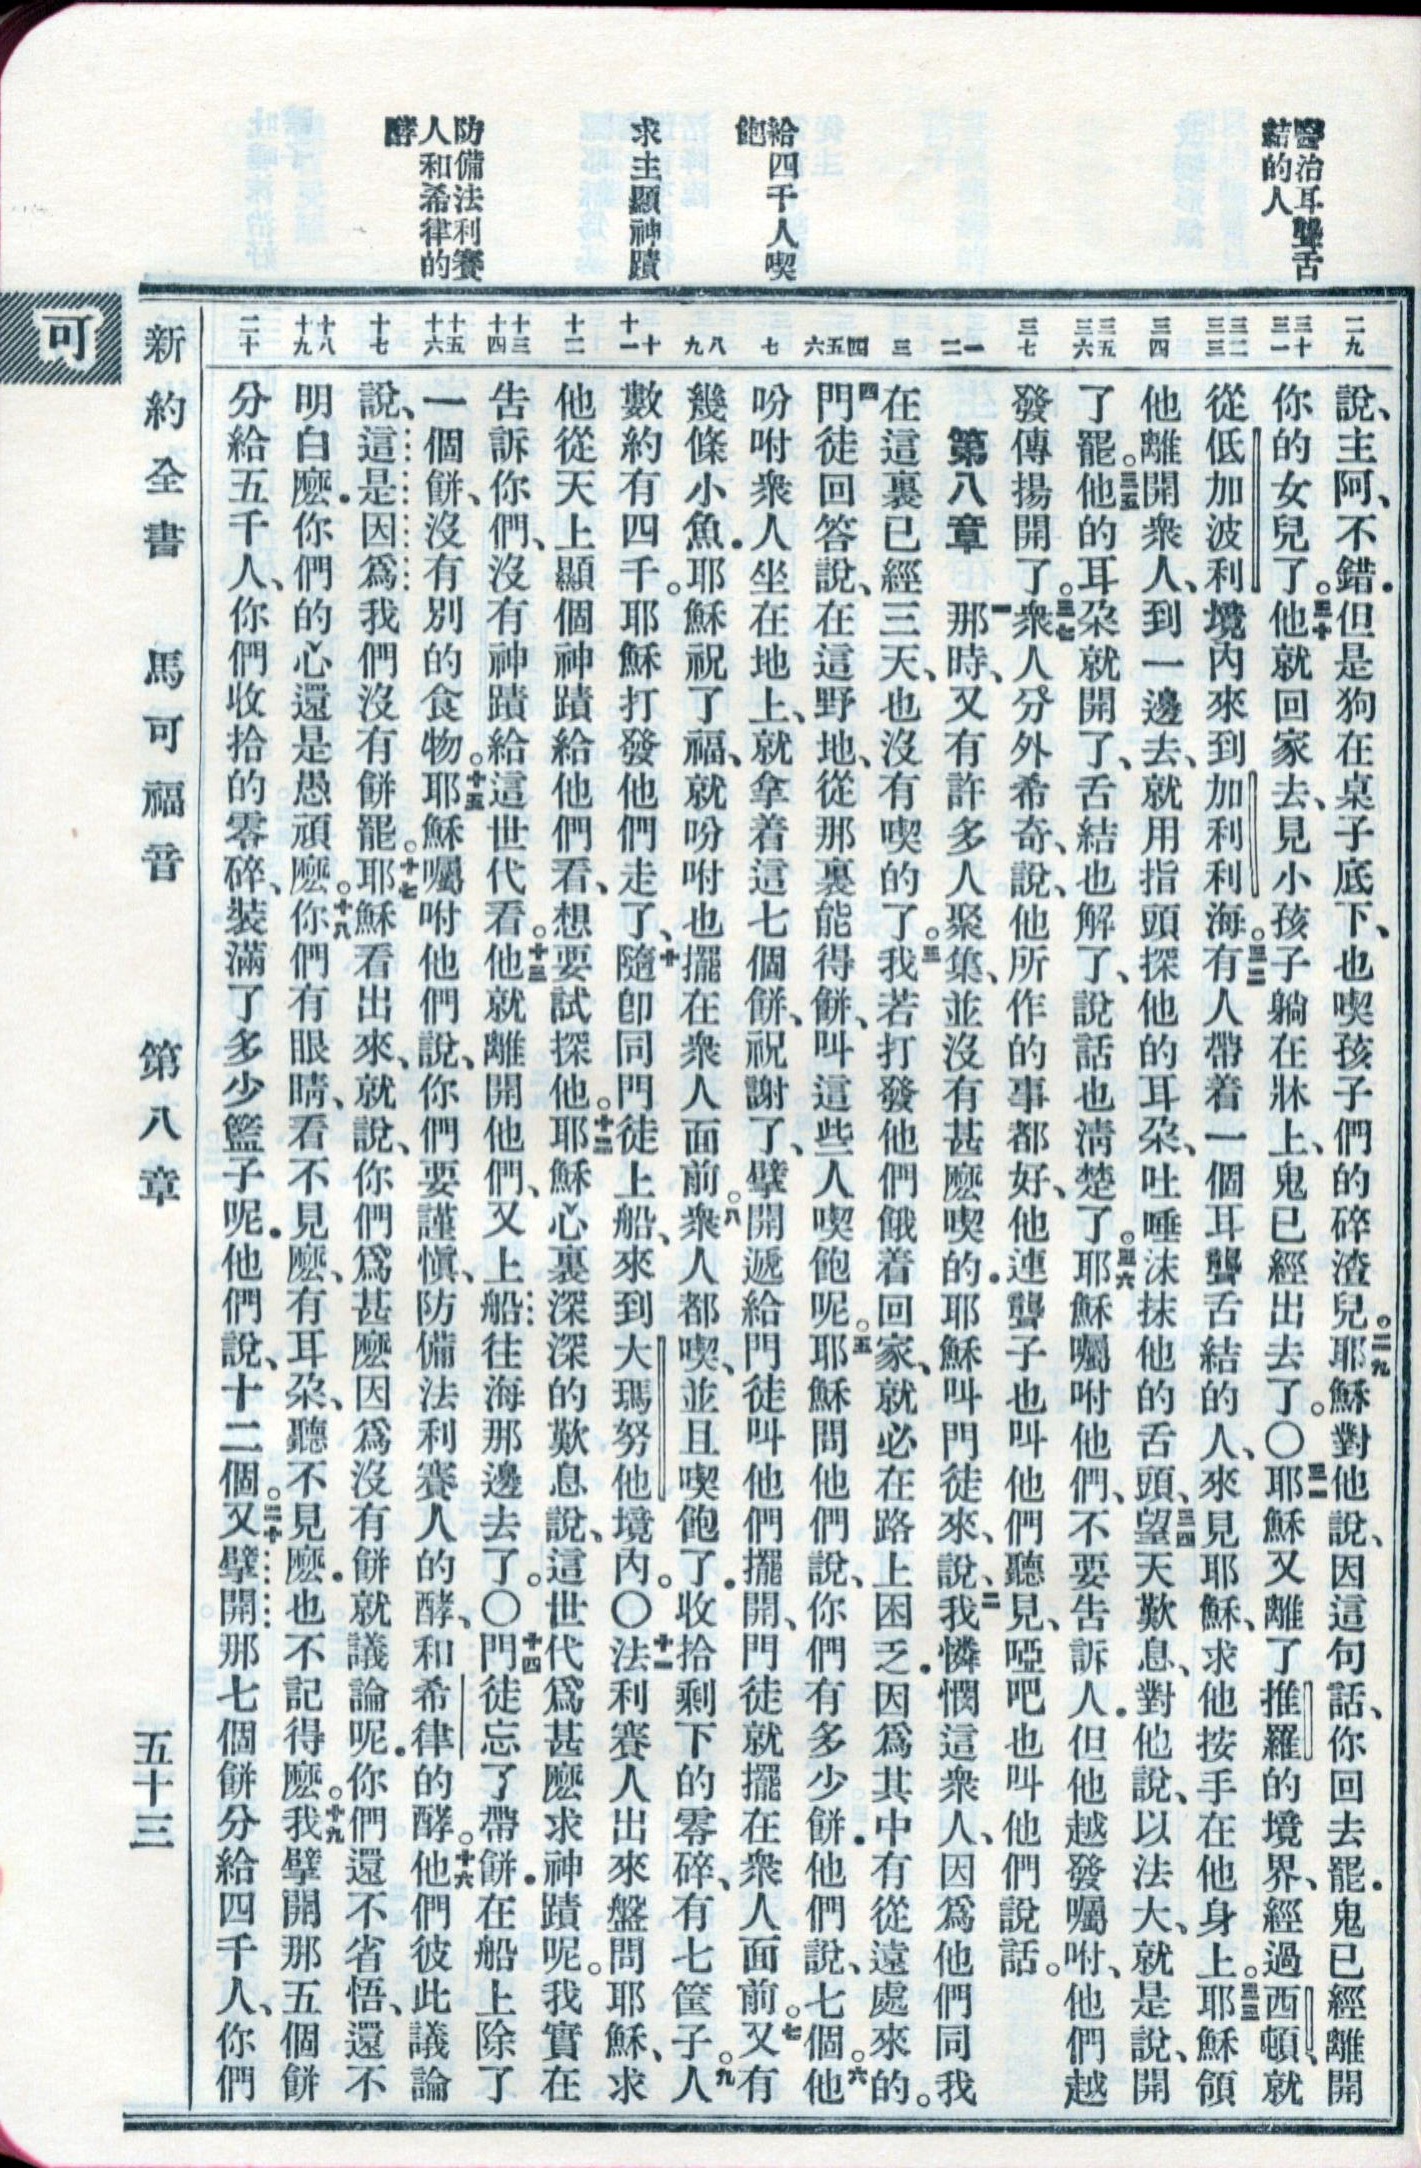 醫治耳聾舌
結的人
給四千人喫
飽
求主顯神蹟
防備法利賽
人和希律的
酵
二九
三十
三一
三二
三三
三四
三五
三六
三七
一
二
三
四
五
六
七
八
九
十
十一
十二
十三
十四
十五
十六
十七
十八
十九
二十
說、主阿、不錯．但是狗在桌子底下、也喫孩子們的碎渣兒。二九耶穌對他說、因這句話、你回去罷．鬼已經離開
你的女兒了。三十他就回家去、見小孩子躺在牀上、鬼已經出去了。○三一耶穌又離了推羅的境界、經過西頓、就
從低加波利境內來到加利利海。三二有人帶着一個耳聾舌結的人、來見耶穌、求他按手在他身上。三三耶穌領
他離開衆人、到一邊去、就用指頭探他的耳朶、吐唾沫抹他的舌頭、三四望天歎息、對他說、以法大、就是說、開
了罷。三五他的耳朶就開了、舌結也解了、說話也淸楚了。三六耶穌囑咐他們、不要告訴人．但他越發囑咐、他們越
發傳揚開了。三七衆人分外希奇、說、他所作的事都好、他連聾子也叫他們聽見、啞吧也叫他們說話。
第八章　一那時、又有許多人聚集、並沒有甚麼喫的．耶穌叫門徒來、說、二我憐憫這衆人、因爲他們同我
在這裏已經三天、也沒有喫的了。三我若打發他們餓着回家、就必在路上困乏．因爲其中有從遠處來的。
四門徒回答說、在這野地、從那裏能得餅、叫這些人喫飽呢。五耶穌問他們說、你們有多少餅．他們說、七個。六他
吩咐衆人坐在地上、就拿着這七個餅、祝謝了、擘開遞給門徒叫他們擺開、門徒就擺在衆人面前。七又有
幾條小魚．耶穌祝了福、就吩咐也擺在衆人面前。八衆人都喫、並且喫飽了．收拾剩下的零碎、有七筐子。九人
數約有四千。耶穌打發他們走了、十隨卽同門徒上船、來到大瑪努他境內。○十一法利賽人出來盤問耶穌、求
他從天上顯個神蹟給他們看、想要試探他。十二耶穌心裏深深的歎息說、這世代爲甚麼求神蹟呢。我實在
告訴你們、沒有神蹟給這世代看。十三他就離開他們、又上船往海那邊去了。○十四門徒忘了帶餅．在船上除了
一個餅、沒有別的食物。十五耶穌囑咐他們說、你們要謹愼、防備法利賽人的酵、和希律的酵。十六他們彼此議論
說、這是因爲我們沒有餅罷。十七耶穌看出來、就說、你們爲甚麼因爲沒有餅就議論呢．你們還不省悟、還不
明白麼．你們的心還是愚頑麼。十八你們有眼睛、看不見麼、有耳朶、聽不見麼．也不記得麼。十九我擘開那五個餅
分給五千人、你們收拾的零碎、裝滿了多少籃子呢．他們說、十二個。二十又擘開那七個餅分給四千人、你們
可
新約全書　馬可福音　第八章　五十三